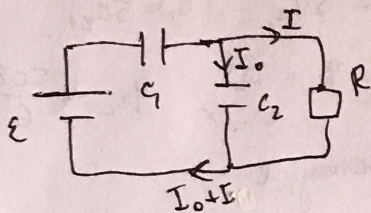 I
I₀
ε
C₁
C₂
R
I₀+I